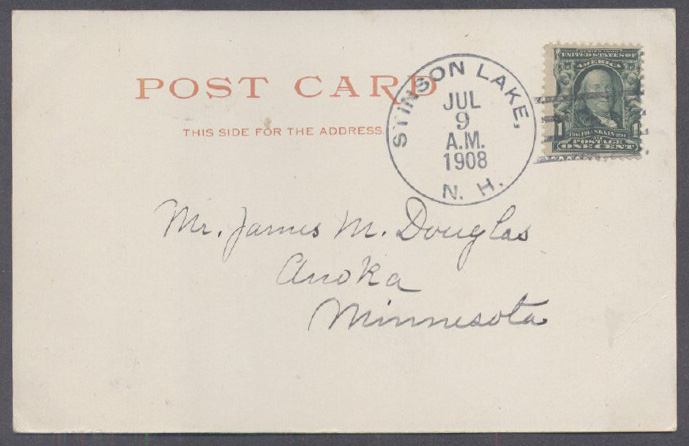 POST CARD
THIS SIDE FOR THE ADDRESS.
STINSON LAKE,
JUL
9
A.M.
1908
N. H.
UNITED STATES OF
AMERICA
1
FRANKLIN
POSTAGE
ONE CENT
Mr. James M. Douglas
Anoka
Minnesota